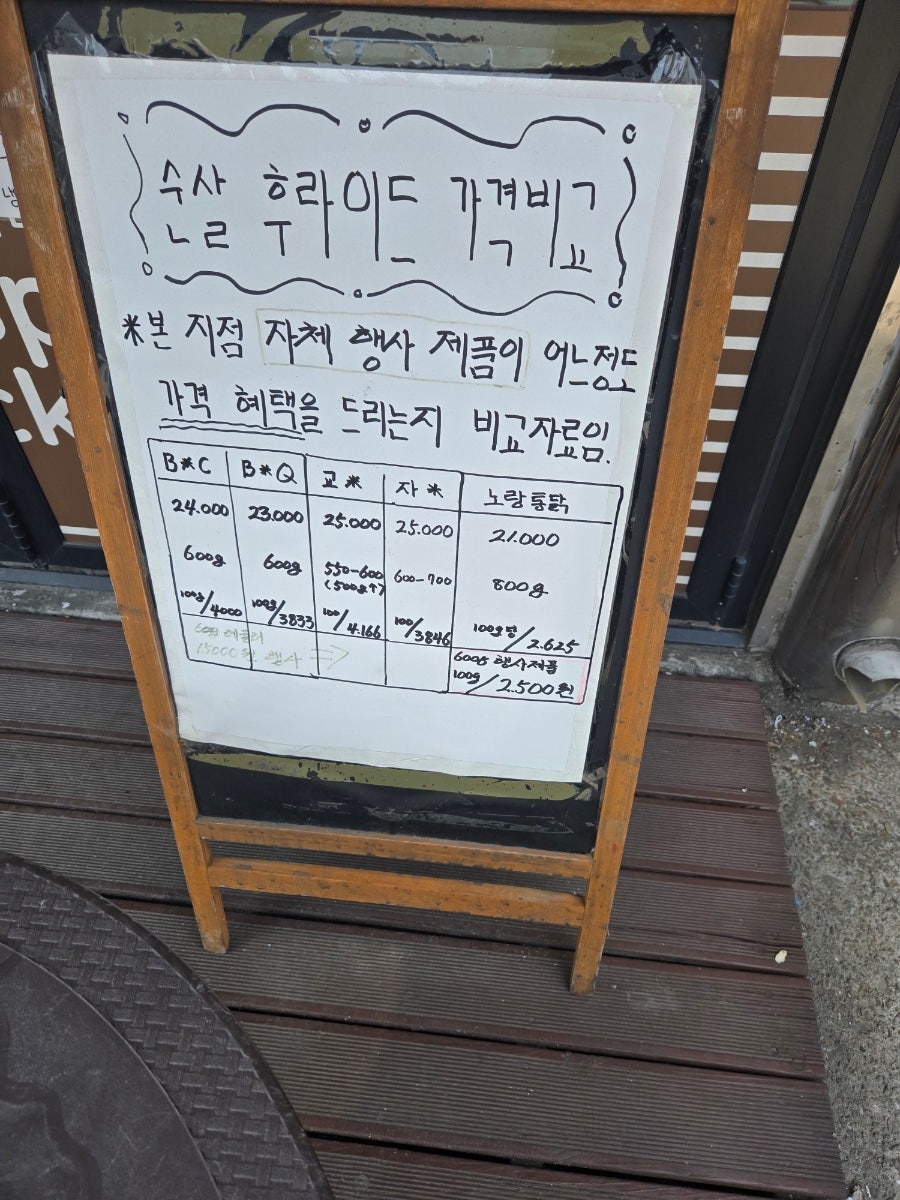 순살 후라이드 가격비교
*본 지점 자체 행사 제품이 어느정도
가격 혜택을 드리는지 비교자료임.
B*C B*Q 교* 자* 노랑통닭
24.000 23.000 25.000 25.000 21.000
600g 600g 550-600 600-700 800g
(500g↑)
100g/4000 100g/3833 100/4.166 100/3846 100g당/2.625
15000원 행사 ⇒
600g 행사제품
100g/2.500원